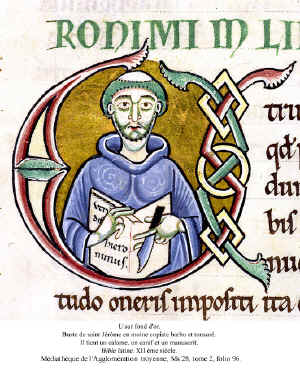 RONIMI IN LI
tru
qd'p
dun
bis
nuc
tudo oneris impositi ita
U sur fond d'or.
Buste de saint Jérôme en moine copiste barbu et tonsuré.
Il tient un calame, un canif et un manuscrit.
Bible latine. XII ème siècle.
Médiathèque de l'Agglomération troyenne, Ms 28, tome 2, folio 96.